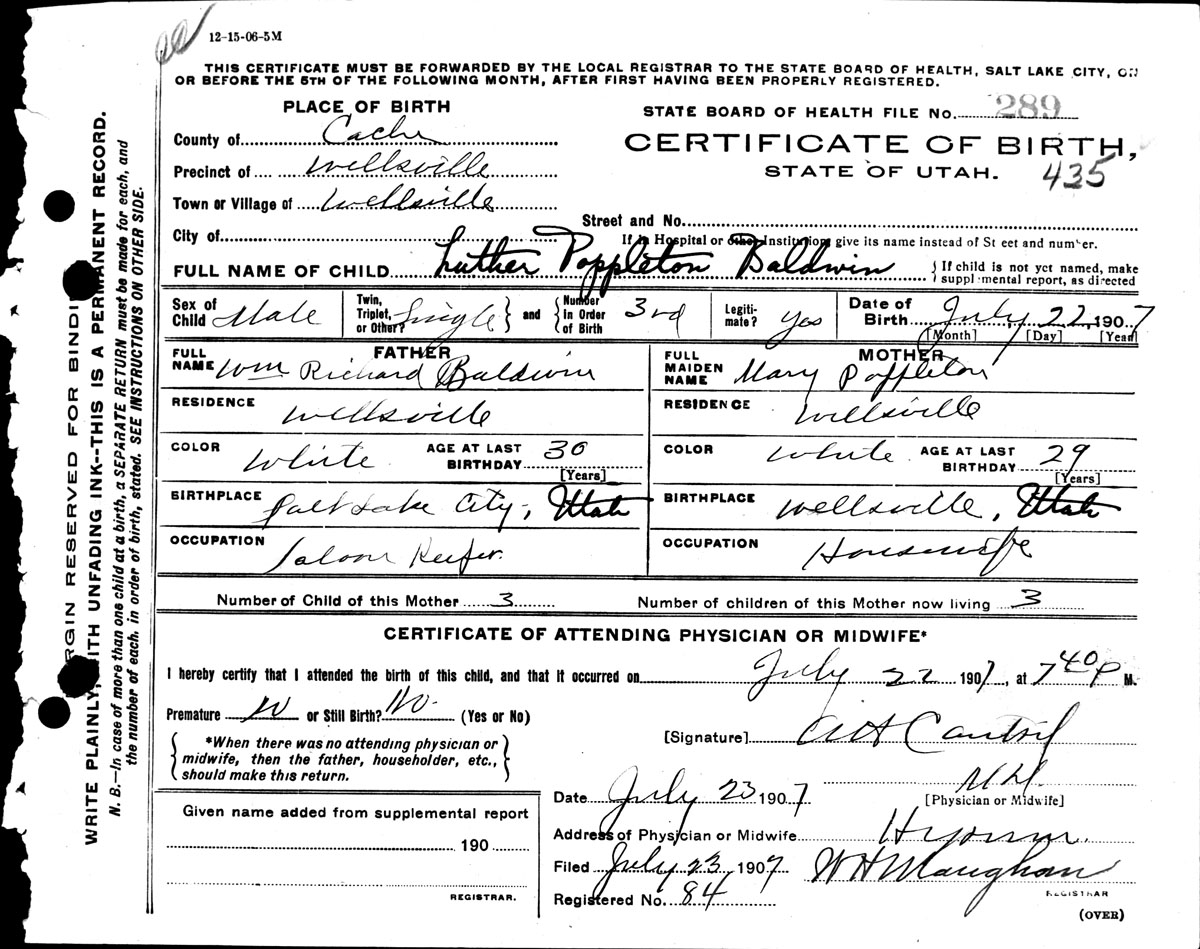 12-15-06-5M
THIS CERTIFICATE MUST BE FORWARDED BY THE LOCAL REGISTRAR TO THE STATE BOARD OF HEALTH, SALT LAKE CITY, ON
OR BEFORE THE 5TH OF THE FOLLOWING MONTH, AFTER FIRST HAVING BEEN PROPERLY REGISTERED.
PLACE OF BIRTH
County of Cache
Precinct of Wellsville
Town or Village of Wellsville
City of
STATE BOARD OF HEALTH FILE No. 289
CERTIFICATE OF BIRTH,
STATE OF UTAH. 435
Street and No.
If in Hospital or other Institution, give its name instead of Street and number.
FULL NAME OF CHILD Luther Poppleton Baldwin { If child is not yet named, make
supplemental report, as directed
Sex of Child Male
Twin, Triplet, or Other? Single } and { Number In Order of Birth 3rd
Legitimate? yes
Date of Birth July 22 1907
[Month] [Day] [Year]
FATHER
FULL NAME Wm Richard Baldwin
RESIDENCE Wellsville
COLOR White AGE AT LAST BIRTHDAY 30
[Years]
BIRTHPLACE Salt Lake City, Utah
OCCUPATION Saloon Keeper.
MOTHER
FULL MAIDEN NAME Mary Poppleton
RESIDENCE Wellsville
COLOR White AGE AT LAST BIRTHDAY 29
[Years]
BIRTHPLACE Wellsville, Utah
OCCUPATION Housewife
Number of Child of this Mother 3 Number of children of this Mother now living 3
CERTIFICATE OF ATTENDING PHYSICIAN OR MIDWIFE*
I hereby certify that I attended the birth of this child, and that it occurred on July 22 1907, at 7 40 P M.
Premature No or Still Birth? No. (Yes or No)
{ *When there was no attending physician or
midwife, then the father, householder, etc.,
should make this return. }
[Signature] Cantril
M.D.
[Physician or Midwife]
Date July 23 1907
Address of Physician or Midwife Hyrum.
Filed July 23 1907 W H Maughan
REGISTRAR
Registered No. 84
(OVER)
Given name added from supplemental report
190
REGISTRAR.
MARGIN RESERVED FOR BINDING
WRITE PLAINLY, WITH UNFADING INK--THIS IS A PERMANENT RECORD.
N. B.—In case of more than one child at a birth, a SEPARATE RETURN must be made for each, and
the number of each, in order of birth, stated. SEE INSTRUCTIONS ON OTHER SIDE.